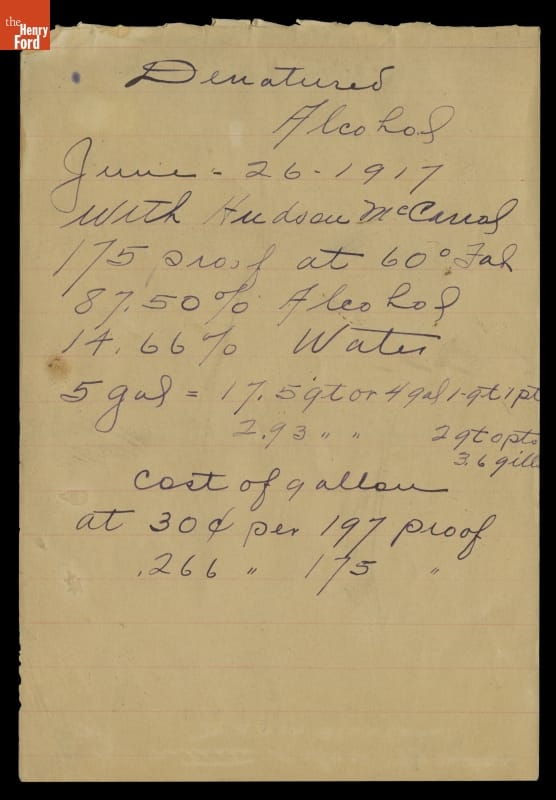 the
Henry
Ford
Denatured
Alcohol
June - 26 - 1917
with Hudson McCarrol
175 proof at 60° Fah
87.50% Alcohol
14.66% Water
5 gal = 17.5 qt or 4 gal 1-qt 1 pt
2.93 " " 2 qt 0 pts
3.6 gill
Cost of gallon
at 30¢ per 197 proof
.266 " 175 "